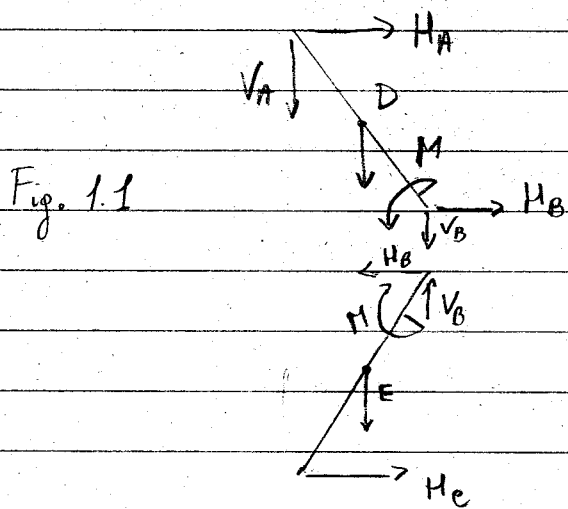 H_A
V_A
D
M
Fig. 1.1
H_B
V_B
H_B
M
V_B
E
H_C